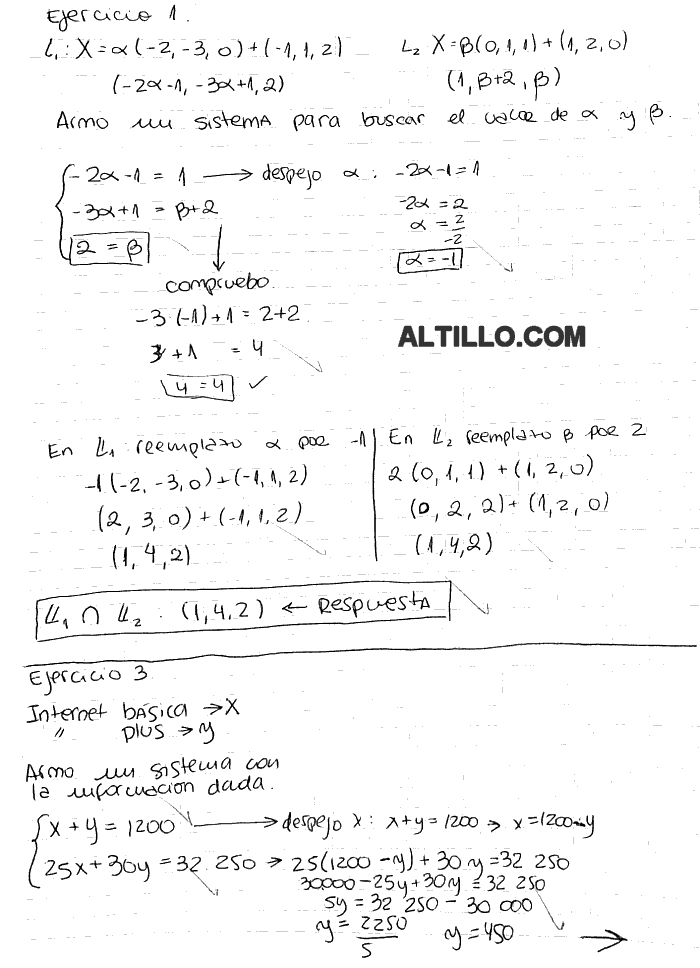 Ejercicio 1.
L₁: X = α(-2, -3, 0) + (-1, 1, 2)    L₂ X = β(0, 1, 1) + (1, 2, 0)
(-2α-1, -3α+1, 2)    (1, β+2, β)
Armo un sistema para buscar el valor de α y β.
-2α-1 = 1 → despejo α: -2α-1 = 1
-3α+1 = β+2    -2α = 2
2 = β    α = 2/-2
α = -1
compruebo
-3(-1)+1 = 2+2
3+1 = 4
4 = 4 ✓
ALTILLO.COM
En L₁ reemplazo α por -1
-1(-2, -3, 0) + (-1, 1, 2)
(2, 3, 0) + (-1, 1, 2)
(1, 4, 2)
En L₂ reemplazo β por 2
2(0, 1, 1) + (1, 2, 0)
(0, 2, 2) + (1, 2, 0)
(1, 4, 2)
L₁ ∩ L₂ . (1, 4, 2) ← Respuesta
Ejercicio 3
Internet básica → X
" plus → y
Armo un sistema con
la informacion dada.
x + y = 1200 → despejo x: x+y = 1200 → x = 1200-y
25x + 30y = 32 250 → 25(1200-y) + 30y = 32 250
30000 - 25y + 30y = 32 250
5y = 32 250 - 30 000
y = 2250/5    y = 450 →